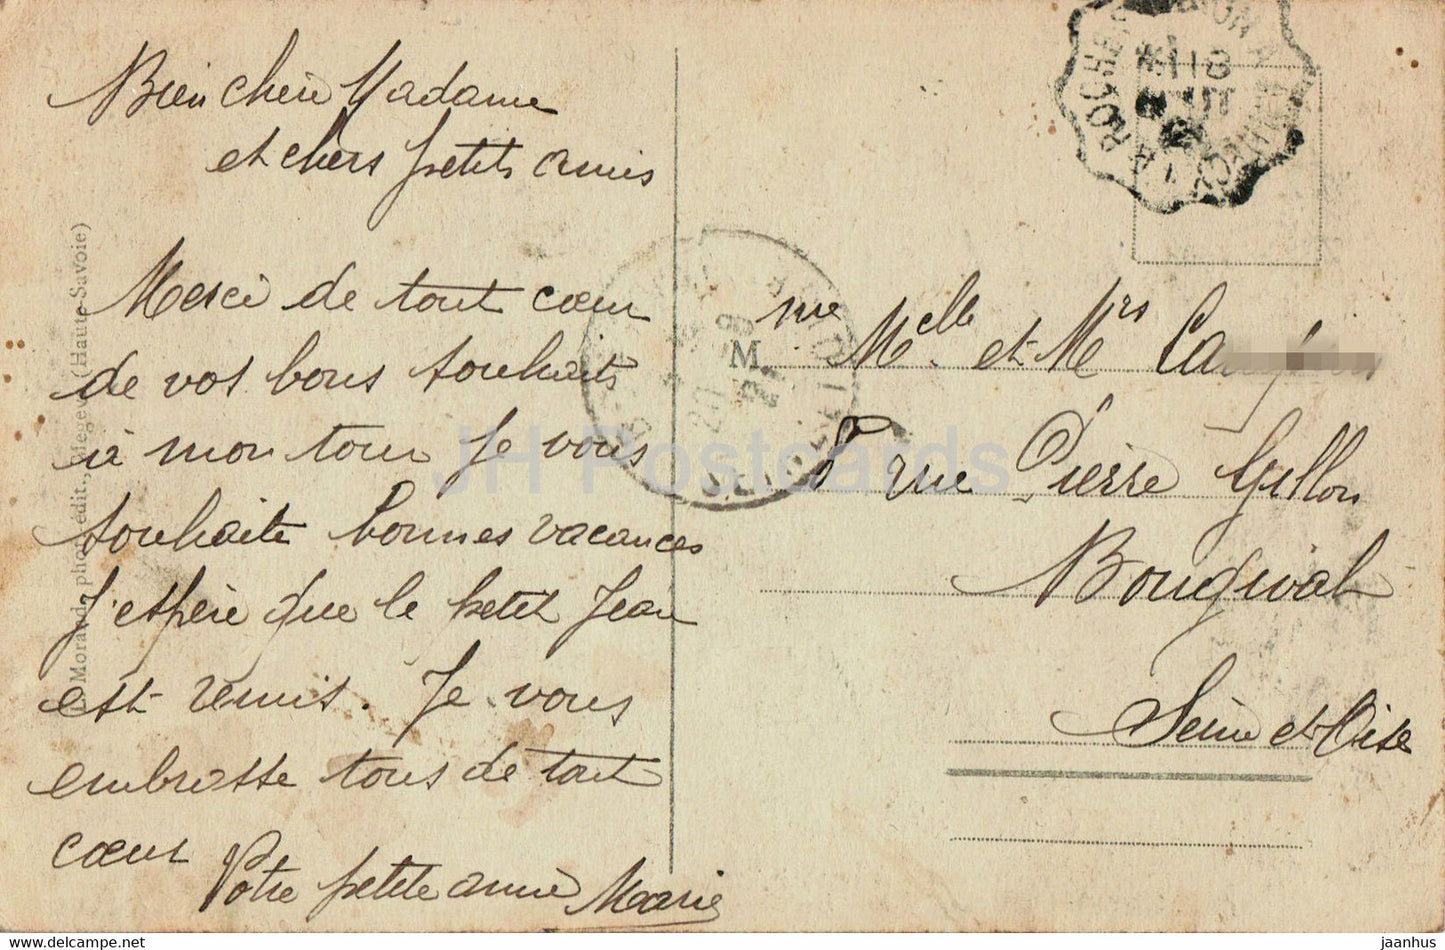 Bien chère Madame
et chers petits amis
Merci de tout cœur
de vos bons souhaits
à mon tour Je vous
souhaite bonnes vacances
J'espère que le petit Jean
est remis. Je vous
embrasse tous de tout
cœur
Votre petite amie Marie
phot.-édit., Megève (Haute-Savoie)
M
Mme Melle et Mrs
8 rue Pierre Gillon
Bougival
Seine et Oise
LA ROCHE
JH Postcards
jaanhus on ePID.com